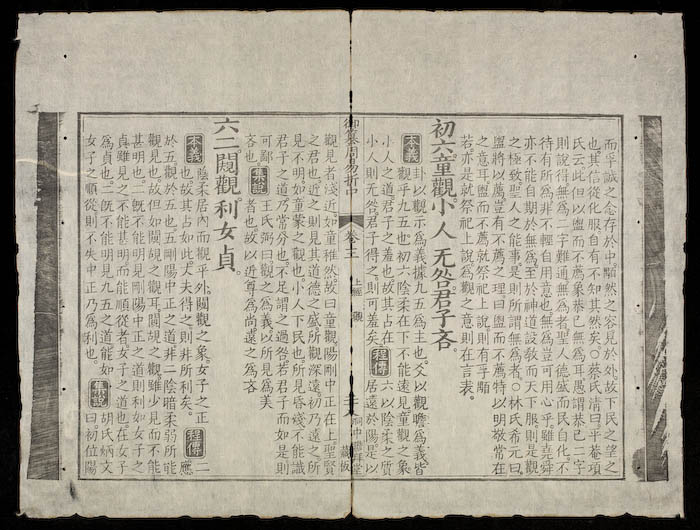 而孚誠之念存於中顒然之容見於外故下民之望之
也其信從化服自有不知其然矣○蔡氏清曰半菴項
氏云此但以盥而不薦象恭已无為耳愚謂恭已二字
則說得無為二字難通無為者聖人德盛而民自化不
待有所為非不輕自用意也無為豈可用心乎雖堯舜
亦不能自期於無為至於神道設敎而天下服則是觀
之極致聖人之能事是則所謂無為者○林氏希元曰
盥將以薦豈有不薦之理曰盥而不薦特以明敬常在
之意耳盥而不薦就祭祀上說則有孚顒
若亦是就祭祀上說為觀之意則在言表
初六童觀小人无咎君子吝
本義 卦以觀示為義據九五為主也爻以觀瞻為義皆
觀乎九五也初六陰柔在下不能遠見童觀之象
小人之道君子之羞也故其占在
小人則无咎君子得之則可羞矣
程傳 六以陰柔之質
居遠於陽是以
御纂周易折中 卷三 上經 觀
藏板
觀見者淺近如童稚然故曰童觀陽剛中正在上聖賢
之君也近之則見其道德之盛所觀深遠初乃遠之所
見不明如童蒙之觀也小人下民也所見昏淺不能識
君子之道乃常分也不足謂之過咎若君子而如是則
可鄙
吝也
集說 王氏弼曰觀之為義以所見為美
者也故以近尊為尚遠之為吝
六二闚觀利女貞
本義 陰柔居內而觀乎外闚觀之象女子之正
也故其占如此丈夫得之則非所利矣
程傳 二應
於五觀於五也五剛陽中正之道非二陰暗柔弱所能
觀見也故但如闚覘之觀耳闚覘之觀雖少見而不能
甚明也二旣不能明見剛陽中正之道則利如女子之
貞雖見之不能甚明而能順從者女子之道也在女子
為貞也二旣不能明見九五之道能如
女子之順從則不失中正乃為利也
集說 胡氏炳文
曰初位陽